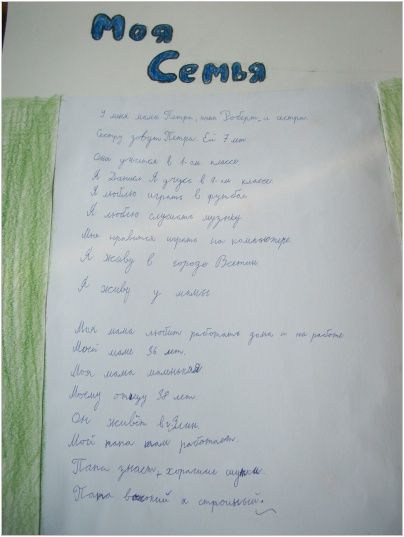 Моя
Семья
У меня мама Петра, папа Роберт, и сестра.
Сестру зовут Петра. Ей 7 лет
Она учится в 1-ом классе
Я Даниел Я учусь в 7-ом классе
Я люблю играть в футбол
Я люблю слушать музыку
Мне нравится играть на компьютере
Я живу в городе Всетин
Я живу у мамы
Моя мама любит работать дома и на работе
Моей маме 36 лет.
Моя мама маленькая
Моему отцу 38 лет
Он живёт в Злин.
Мой папа там работает
Папа знает хорошие шутки.
Папа высокий и стройный.